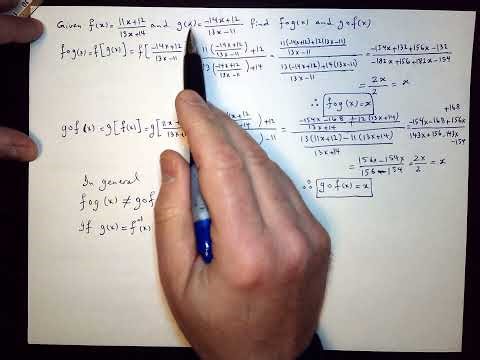 Given f(x) = 11x+12/13x+14 and g(x) = -14x+12/13x-11 find fog(x) and gof(x)
fog(x) = f[g(x)] = f[-14x+12/13x-11 11(-14x+12/13x-11)+12/13(-14x+12/13x-11)+14 = 11(-14x+12)+12(13x-11)/13x-11/13(-14x+12)+14(13x-11)/13x-11 = -154x+132+156x-132/-182x+156+182x-154
= 2x/2 = x
∴ fog(x) = x
gof(x) = g[f(x)] = g[ )+12 )-11 = -154x-168 +12(13x+14)/13x+14/13(11x+12)-11(13x+14)/13x+14 = -154x-168+156x+168/143x+156-143x-154
= 156x-154x/156-154 = 2x/2 = x
∴ gof(x) = x
In general
fog(x) ≠ gof
If g(x) = f⁻¹(x)